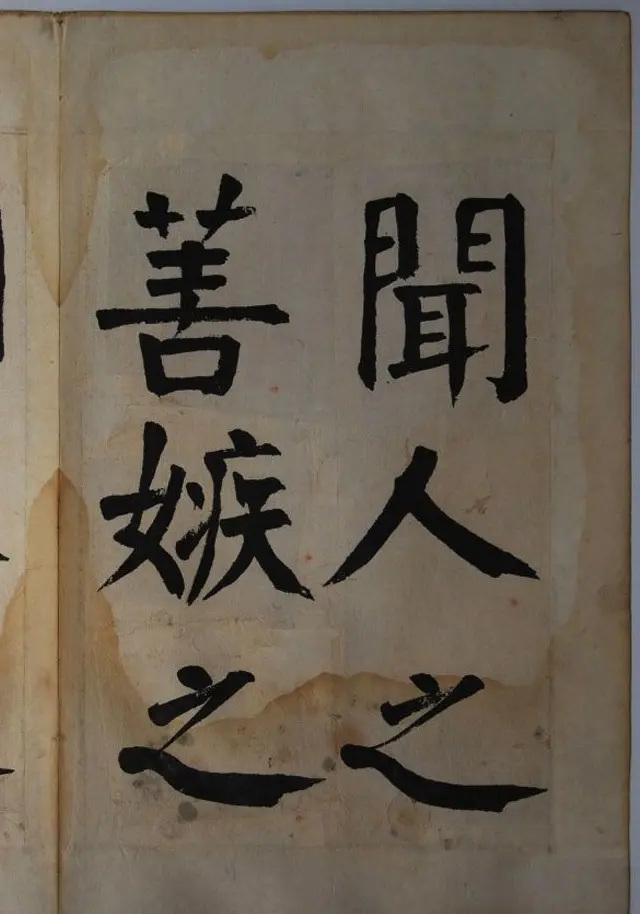 聞人之
善嫉之